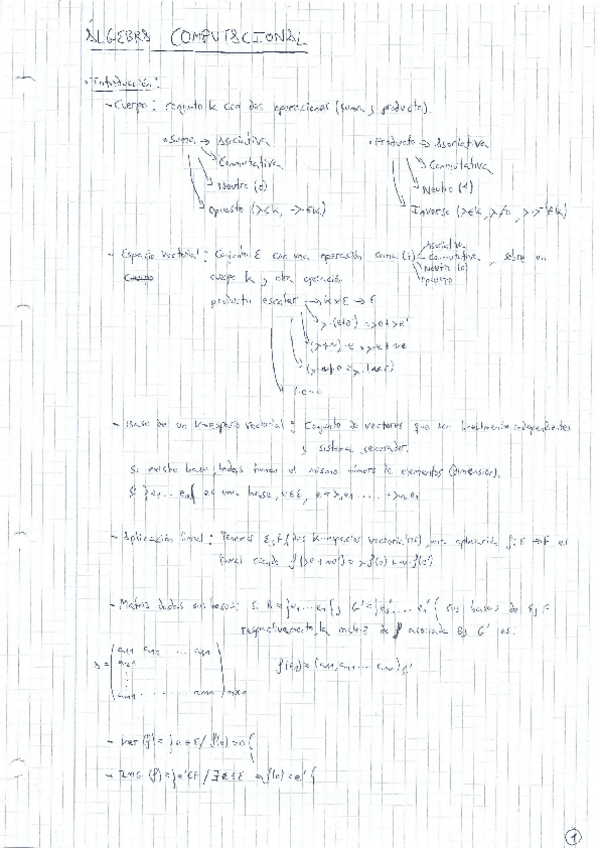 ÁLGEBRA COMPUTACIONAL
• Introducción:
- Cuerpo: conjunto k con dos operaciones (suma y producto).
• Suma → Asociativa
Conmutativa
Neutro (0)
Opuesto (λ∈k, -λ∈k)
• Producto → Asociativa
Conmutativa
Neutro (1)
Inverso (λ∈k, λ≠0, λ⁻¹∈k)
- Espacio vectorial: Conjunto E con una operación suma (+) Asociativa Conmutativa Neutro (0) Opuesto, sobre un
cuerpo k y otra operación
producto escalar → k×E → E
λ·(e+e') = λe+λe'
1·e=e
- Base de un k-espacio vectorial: Conjunto de vectores que son linealmente independientes
y sistema generador.
Si existe base, todas tienen el mismo número de elementos (dimensión).
Si }e1...en{ es una base,
- Aplicación lineal: Tenemos E, F (dos k-espacios vectoriales), una aplicación f: E → F es
lineal cuando f(λe+μe') = λf(e)+μf(e').
- Matriz dadas sus bases: Si B=}e1...en{ y G'=}e1',...en'{ son bases de E y F
respectivamente, la matriz de f asociada B y G' es:
- Ker(f) = }e∈E / f(e)=0{
- Img(f) = }e'∈F / ∃e∈E f(e)=e'{
1